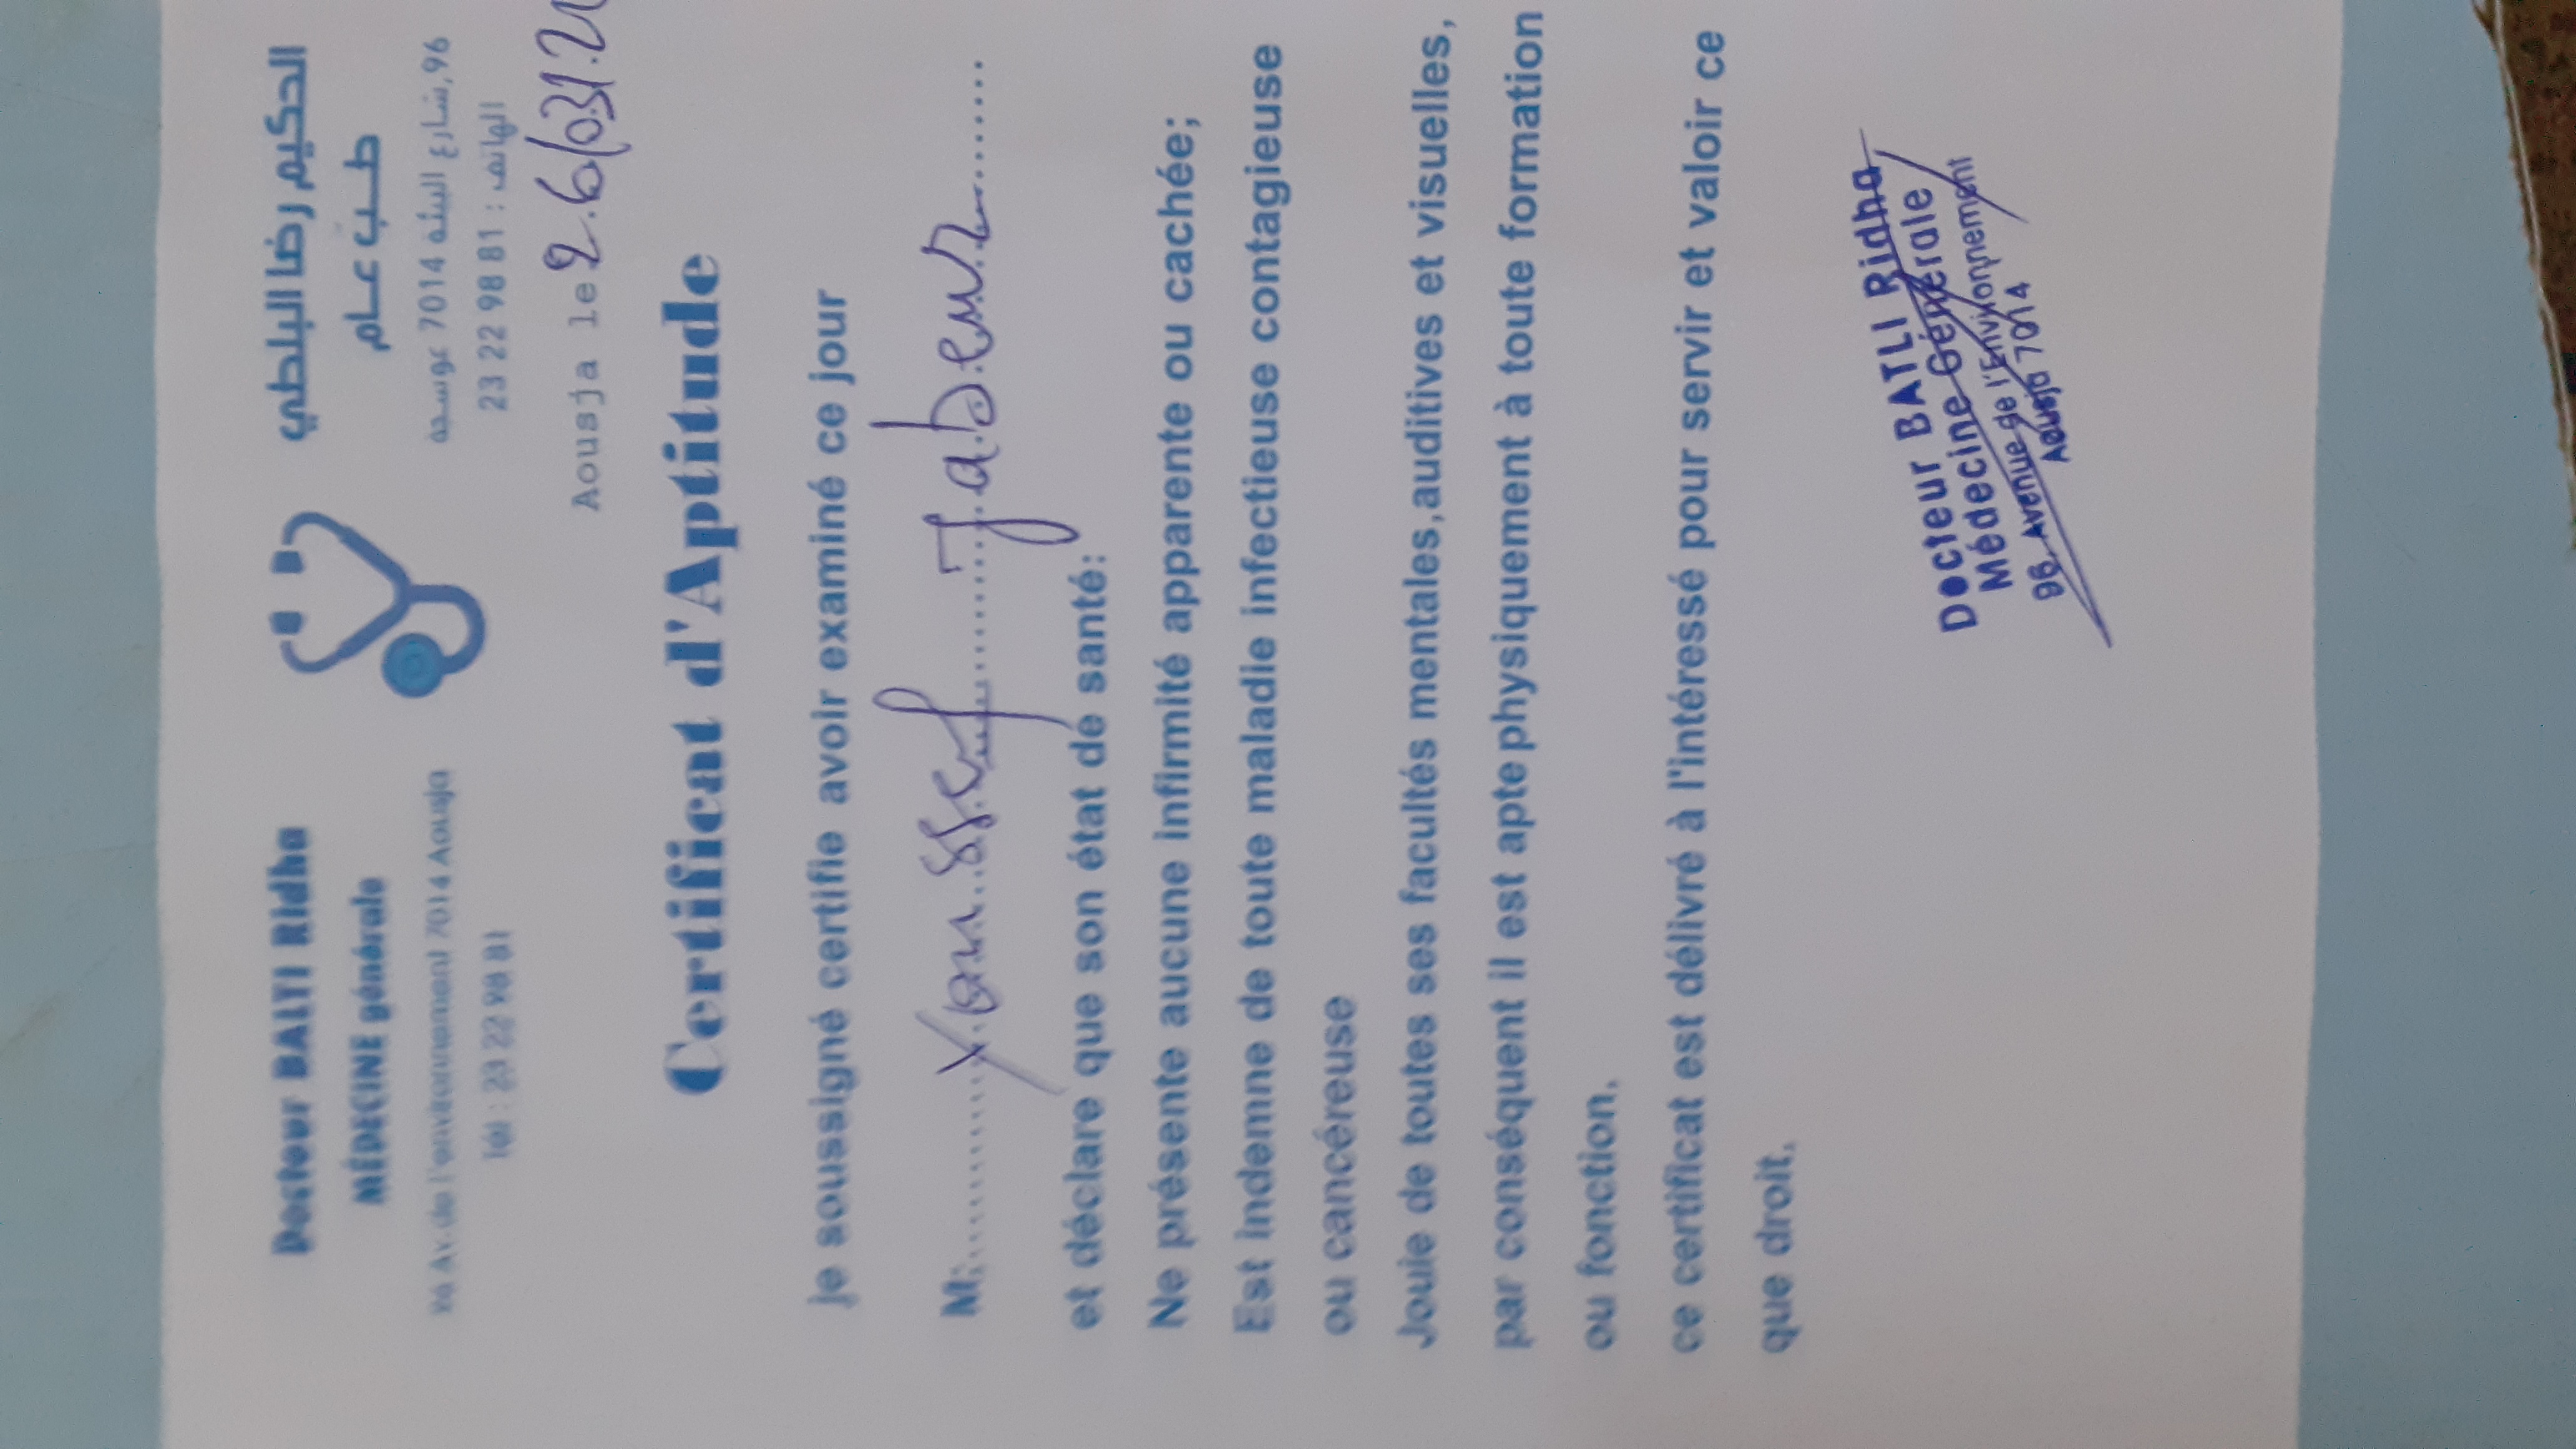 Docteur BALTI Ridha
MÉDECINE générale
96 Av. de l'environnement 7014 Aousja
Tél : 23 22 98 81
الحكيم رضا البلطي
طب عام
96, شارع البيئة 7014 عوسجة
الهاتف : 23 22 98 81
Aousja le 26/03/2
Certificat d'Aptitude
je soussigné certifie avoir examiné ce jour
M: Youssef Jabeur
et déclare que son état de santé:
Ne présente aucune infirmité apparente ou cachée;
Est indemne de toute maladie infectieuse contagieuse
ou cancéreuse
Jouie de toutes ses facultés mentales,auditives et visuelles,
par conséquent il est apte physiquement à toute formation
ou fonction.
ce certificat est délivré à l'intéressé pour servir et valoir ce
que droit.
Docteur BATLI Ridha
Médecine Générale
96. Avenue de l'Environnement
Aousja 7014